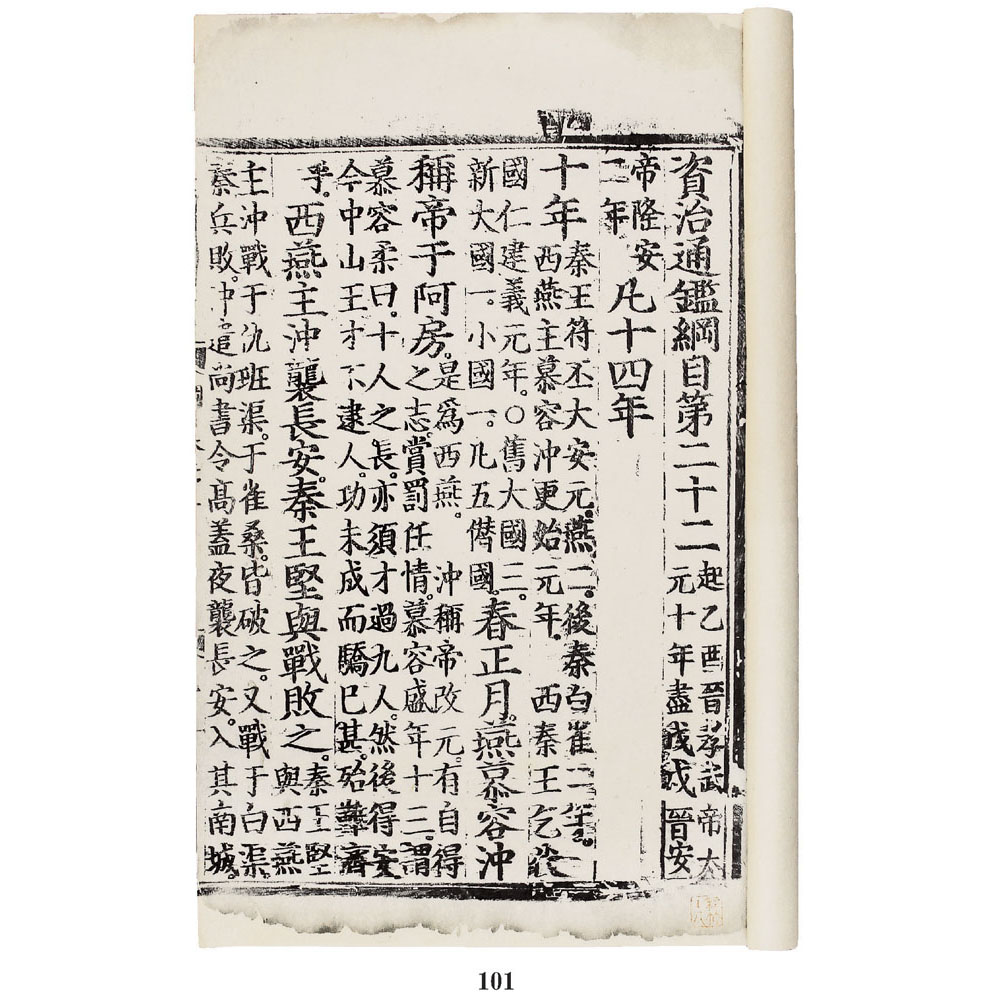 資治通鑑綱目第二十二 起乙酉晉孝武帝太
元十年盡戊戌晉安
帝隆安
二年 凡十四年
十年 秦王符丕大安元。燕二。後秦白雀二年。
西燕主慕容沖更始元年。 西秦王乞伏
國仁建義元年。○舊大國三。
新大國一。小國一。凡五僣國。春正月。燕慕容沖
稱帝于阿房。是為西燕。 沖稱帝改元。有自得
之志。賞罰任情。慕容盛年十三。謂
慕容柔曰。十人之長。亦須才過九人。然後得安
今中山王才不逮人。功未成而驕已甚。殆難濟
乎。西燕主沖襲長安。秦王堅與戰敗之。秦王堅
與西燕
主沖戰于仇班渠。于雀桑。皆破之。又戰于白渠。
秦兵敗。沖遣尚書令高蓋夜襲長安。入其南城。
101